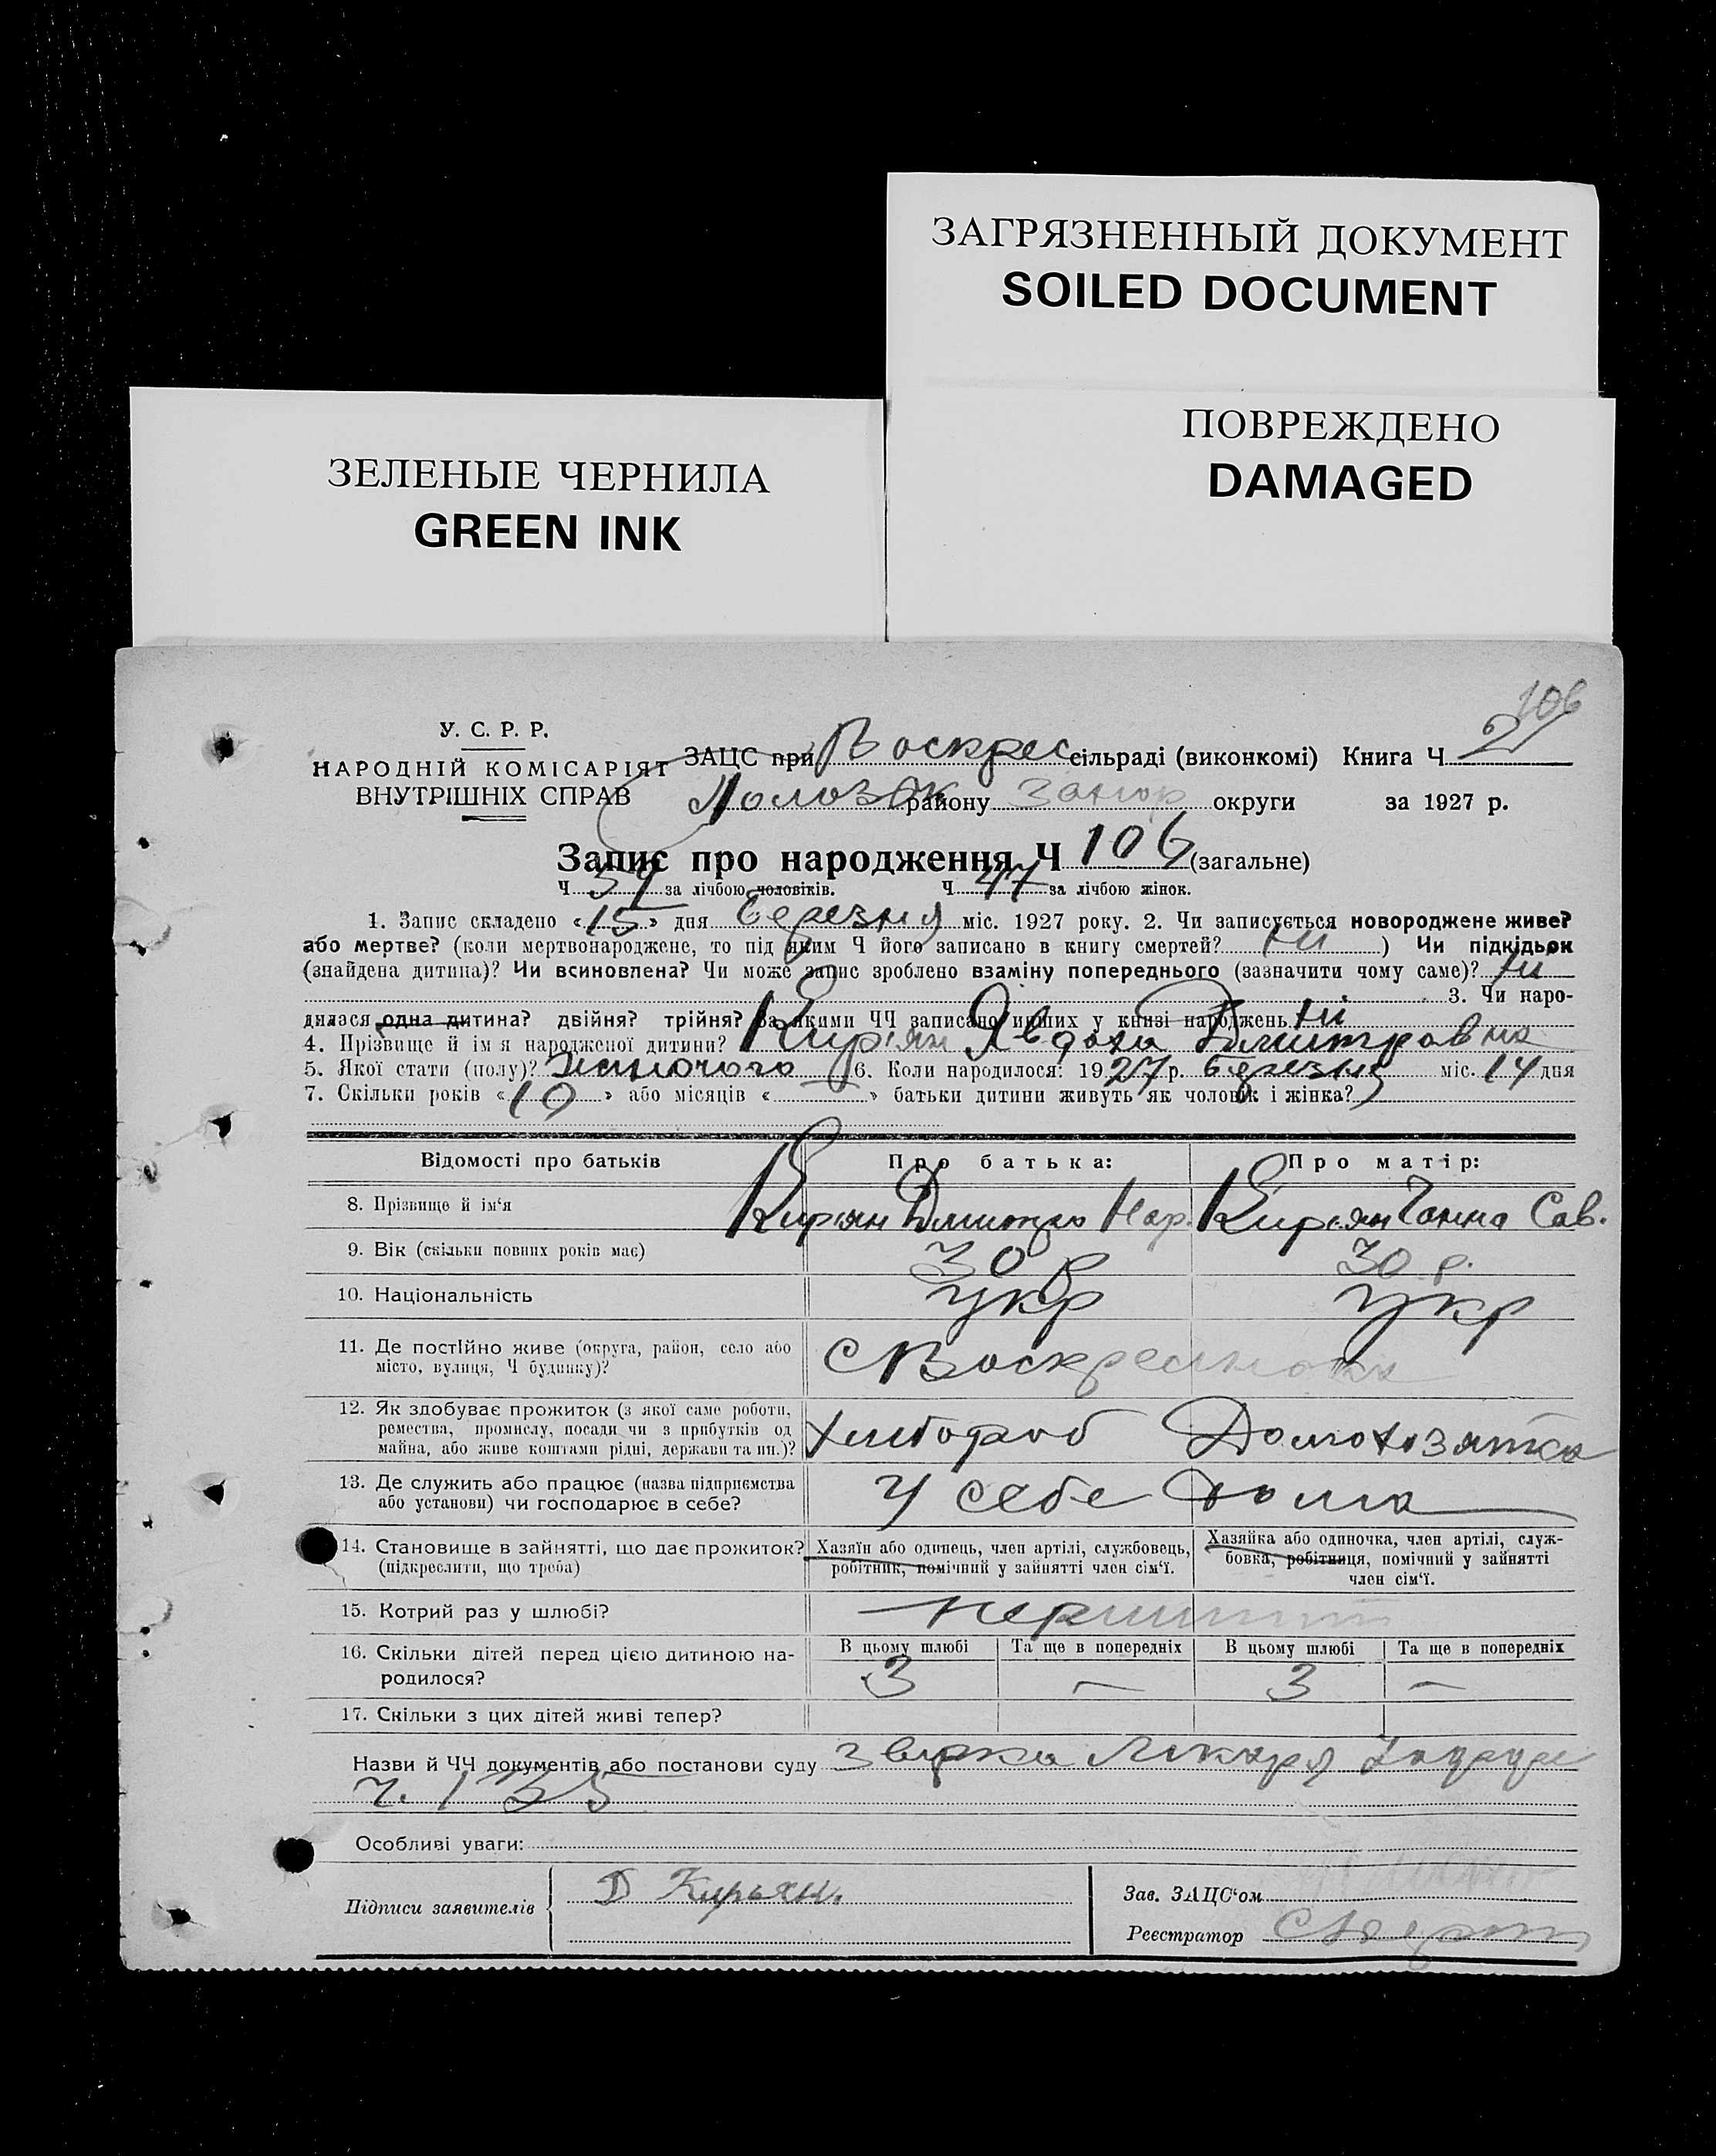 ЗАГРЯЗНЕННЫЙ ДОКУМЕНТ
SOILED DOCUMENT
ПОВРЕЖДЕНО
DAMAGED
ЗЕЛЕНЫЕ ЧЕРНИЛА
GREEN INK
106
У. С. Р. Р.
НАРОДНІЙ КОМІСАРІЯТ
ВНУТРІШНІХ СПРАВ
ЗАЦС при Воскрес сільраді (виконкомі) Книга Ч 2
району Запор округи за 1927 р.
Запис про народження Ч 106 (загальне)
Ч 59 за лічбою чоловіків. Ч 47 за лічбою жінок.
1. Запис складено «15» дня березня міс. 1927 року. 2. Чи записується новороджене живе?
або мертве? (коли мертвонароджене, то під яким Ч його записано в книгу смертей? ні ) Чи підкідьок
(знайдена дитина)? Чи всиновлена? Чи може запис зроблено взаміну попереднього (зазначити чому саме)? ні
3. Чи наро-
дилася одна дитина? двійня? трійня? За якими ЧЧ записано инших у книзі народжень ні
4. Прізвище й ім я народженої дитини? Кирьян Явдоха Дмитровна
5. Якої стати (полу)? жіночого 6. Коли народилося: 1927 р. березня міс. 14 дня
7. Скільки років «10» або місяців « » батьки дитини живуть як чоловік і жінка?
Відомості про батьків Про батька: Про матір:
8. Прізвище й ім‘я Кирьян Дмитро Кирьян Ганна Сав.
9. Вік (скільки повних років має) 30 р 30 р.
10. Національність Укр Укр
11. Де постійно живе (округа, район, село або
місто, вулиця, Ч будинку)? с Воскресенка
12. Як здобуває прожиток (з якої саме роботи,
ремества, промислу, посади чи з прибутків од
майна, або живе коштами рідні, держави та ин.)? Хлібороб Домохозяйка
13. Де служить або працює (назва підприємства
або установи) чи господарює в себе? У себе дома
14. Становище в зайнятті, що дає прожиток?
(підкреслити, що треба)
Хазяїн або одинець, член артілі, службовець,
робітник, помічний у зайнятті член сім‘ї.
Хазяйка або одиночка, член артілі, служ-
бовка, робітниця, помічний у зайнятті
член сім‘ї.
15. Котрий раз у шлюбі? перший
16. Скільки дітей перед цією дитиною на-
родилося?
В цьому шлюбі Та ще в попередніх В цьому шлюбі Та ще в попередніх
3 — 3 —
17. Скільки з цих дітей живі тепер?
Назви й ЧЧ документів або постанови суду
ч. 135
Особливі уваги:
Підписи заявителів Д Кирьян.
Зав. ЗАЦС‘ом
Реєстратор